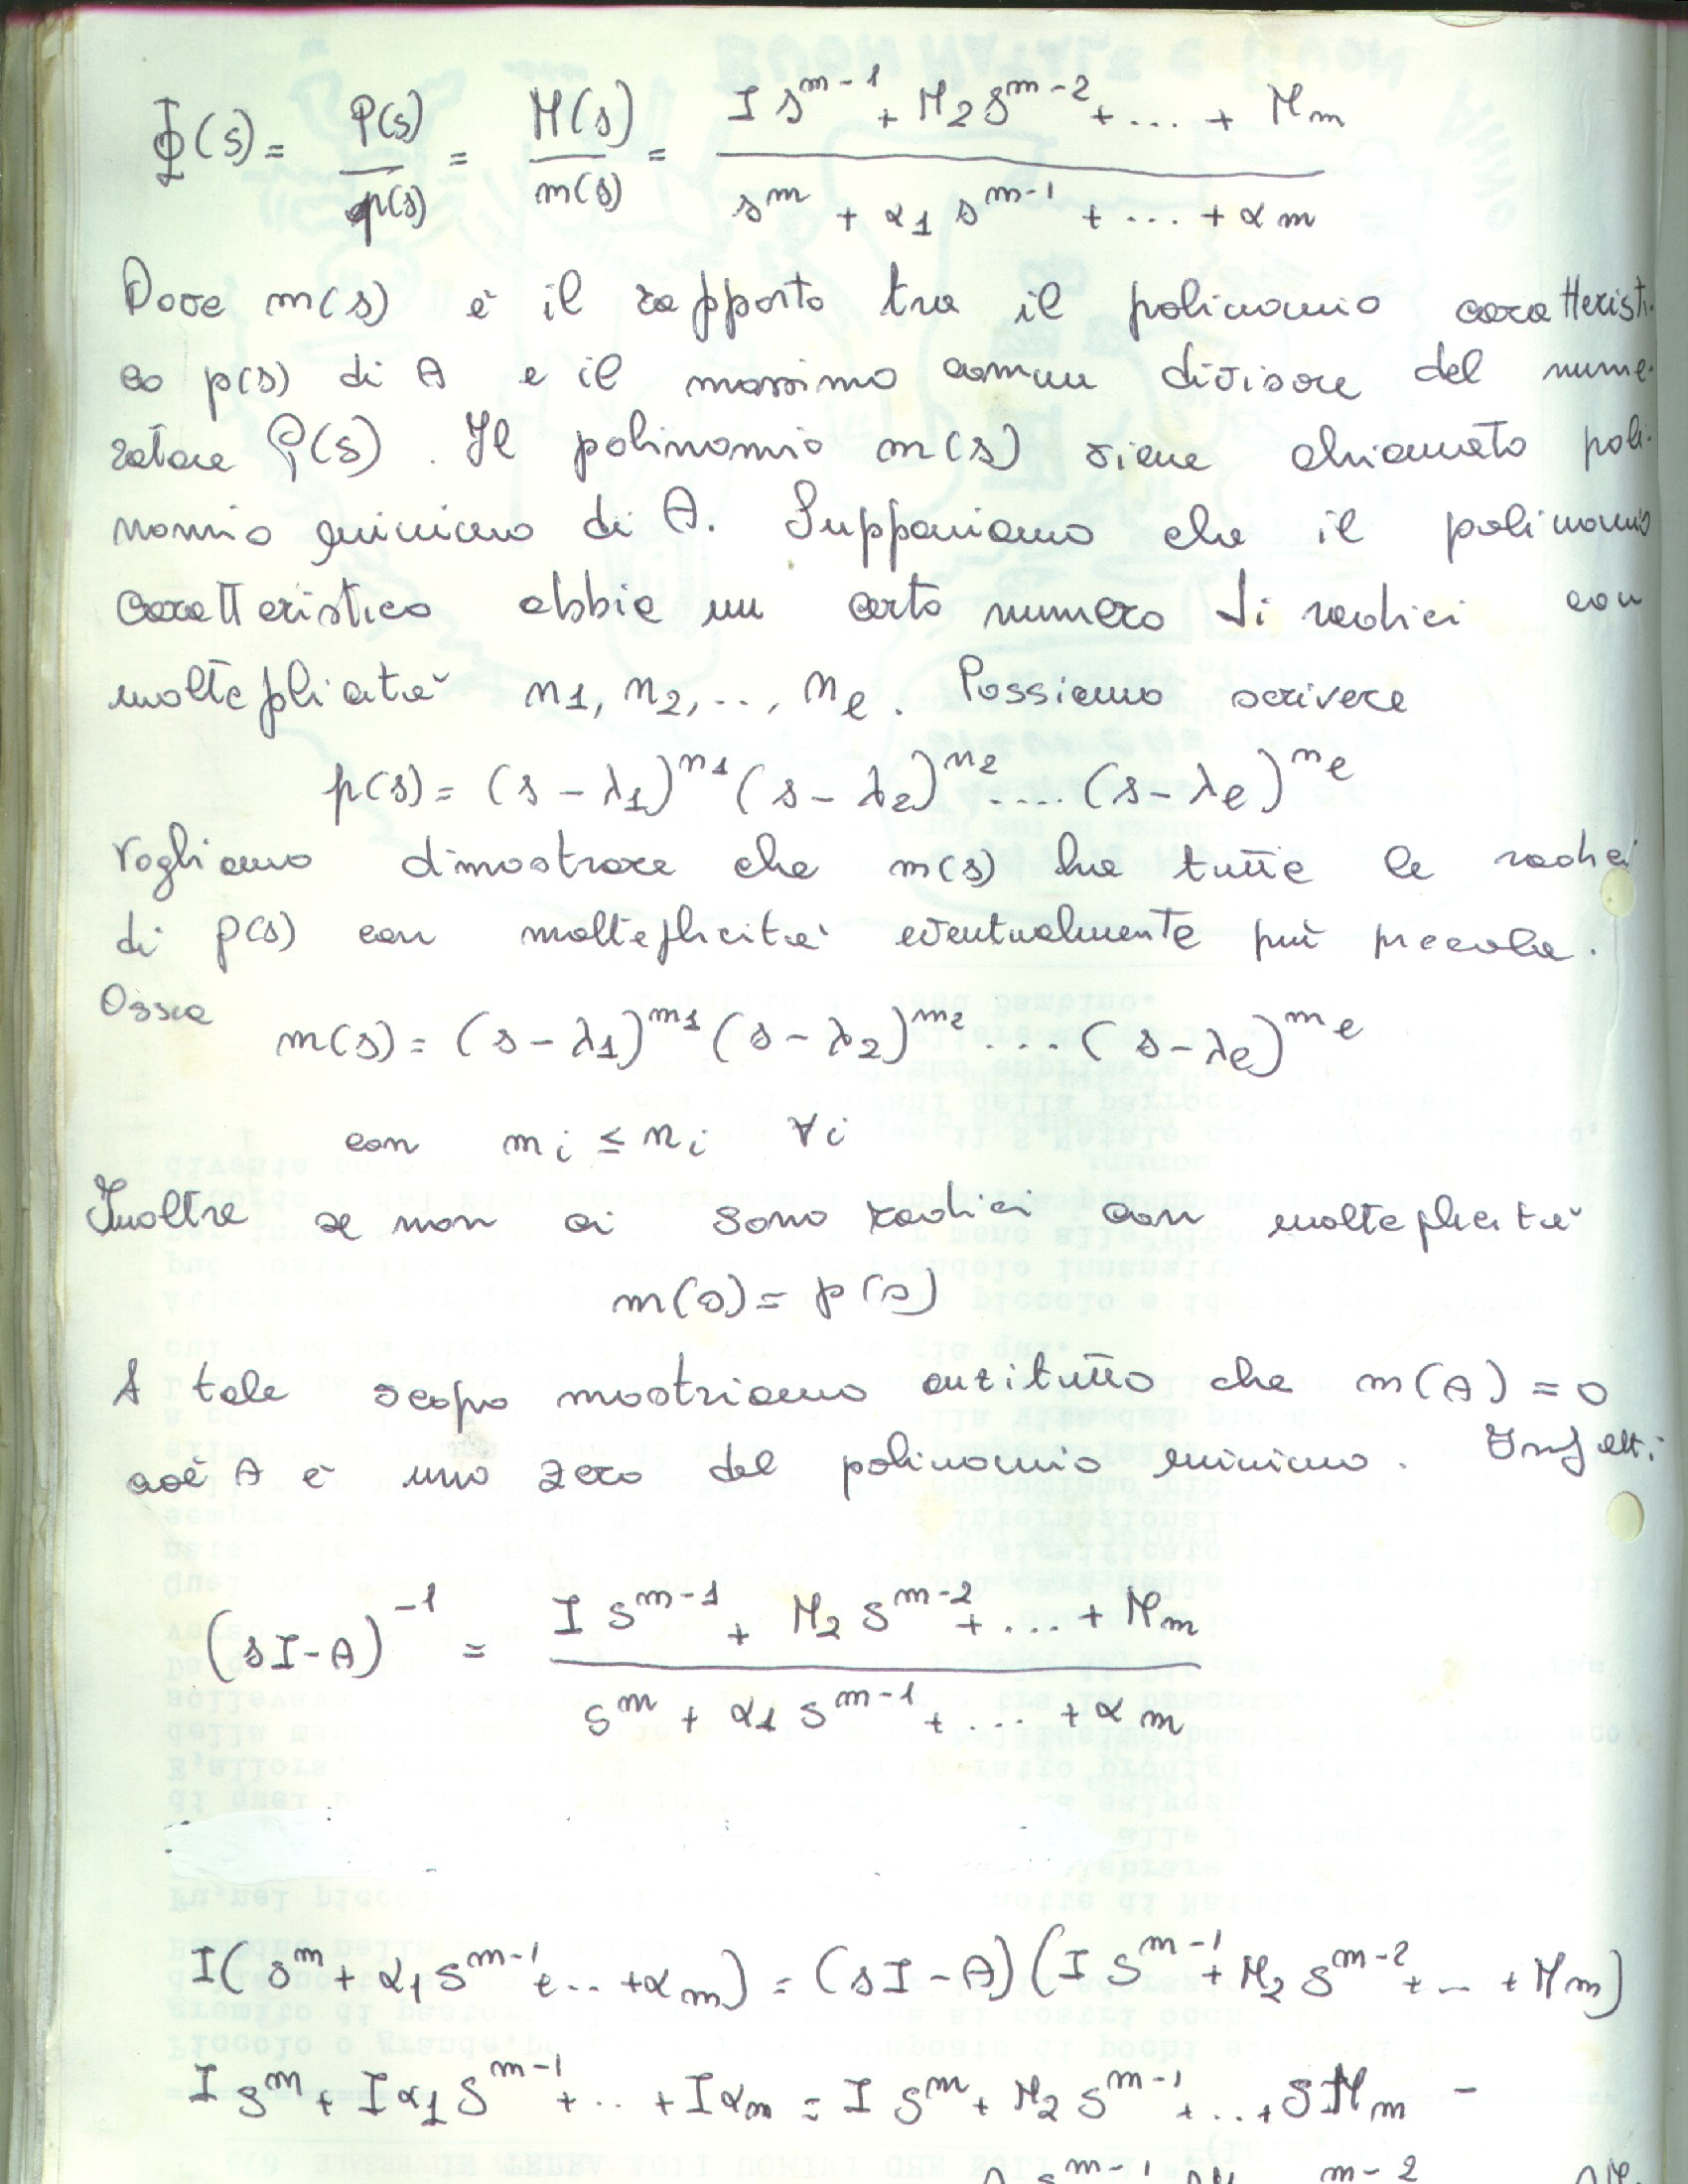 Φ(s) = P(s)/p(s) = M(s)/m(s) = (I s^{m-1} + M_2 s^{m-2} + ... + M_m)/(s^m + α_1 s^{m-1} + ... + α_m)
Dove m(s) è il rapporto tra il polinomio caratteristi-
co p(s) di A e il massimo comun divisore del nume-
ratore P(s). Il polinomio m(s) viene chiamato poli-
nomio minimo di A. Supponiamo che il polinomio
caratteristico abbia un certo numero di radici con
molteplicità n_1, n_2, .., n_e. Possiamo scrivere
p(s) = (s - λ_1)^{n_1} (s - λ_2)^{n_2} .... (s - λ_e)^{n_e}
Vogliamo dimostrare che m(s) ha tutte le radici
di p(s) con molteplicità eventualmente più piccola.
Ossia
m(s) = (s - λ_1)^{m_1} (s - λ_2)^{m_2} .... (s - λ_e)^{m_e}
con m_i ≤ n_i ∀i
Inoltre se non ci sono radici con molteplicità
m(s) = p(s)
A tale scopo mostriamo anzitutto che m(A) = 0
cioè A è uno zero del polinomio minimo. Infatti
(sI - A)^{-1} = (I s^{m-1} + M_2 s^{m-2} + ... + M_m)/(s^m + α_1 s^{m-1} + ... + α_m)
I(s^m + α_1 s^{m-1} + .. + α_m) = (sI - A)(I s^{m-1} + M_2 s^{m-2} + ... + M_m)
I s^m + I α_1 s^{m-1} + .. + I α_m = I s^m + M_2 s^{m-1} + .. + s M_m -